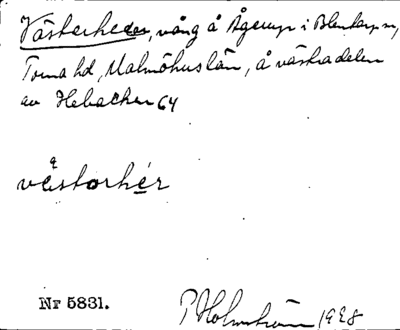 Västerheden, vång å Ågerup i Blentarp sn,
Torna hd, Malmöhus län, å västra delen
av Hebacken 64
västorhér
Nr 5831.
P Holmström 1928